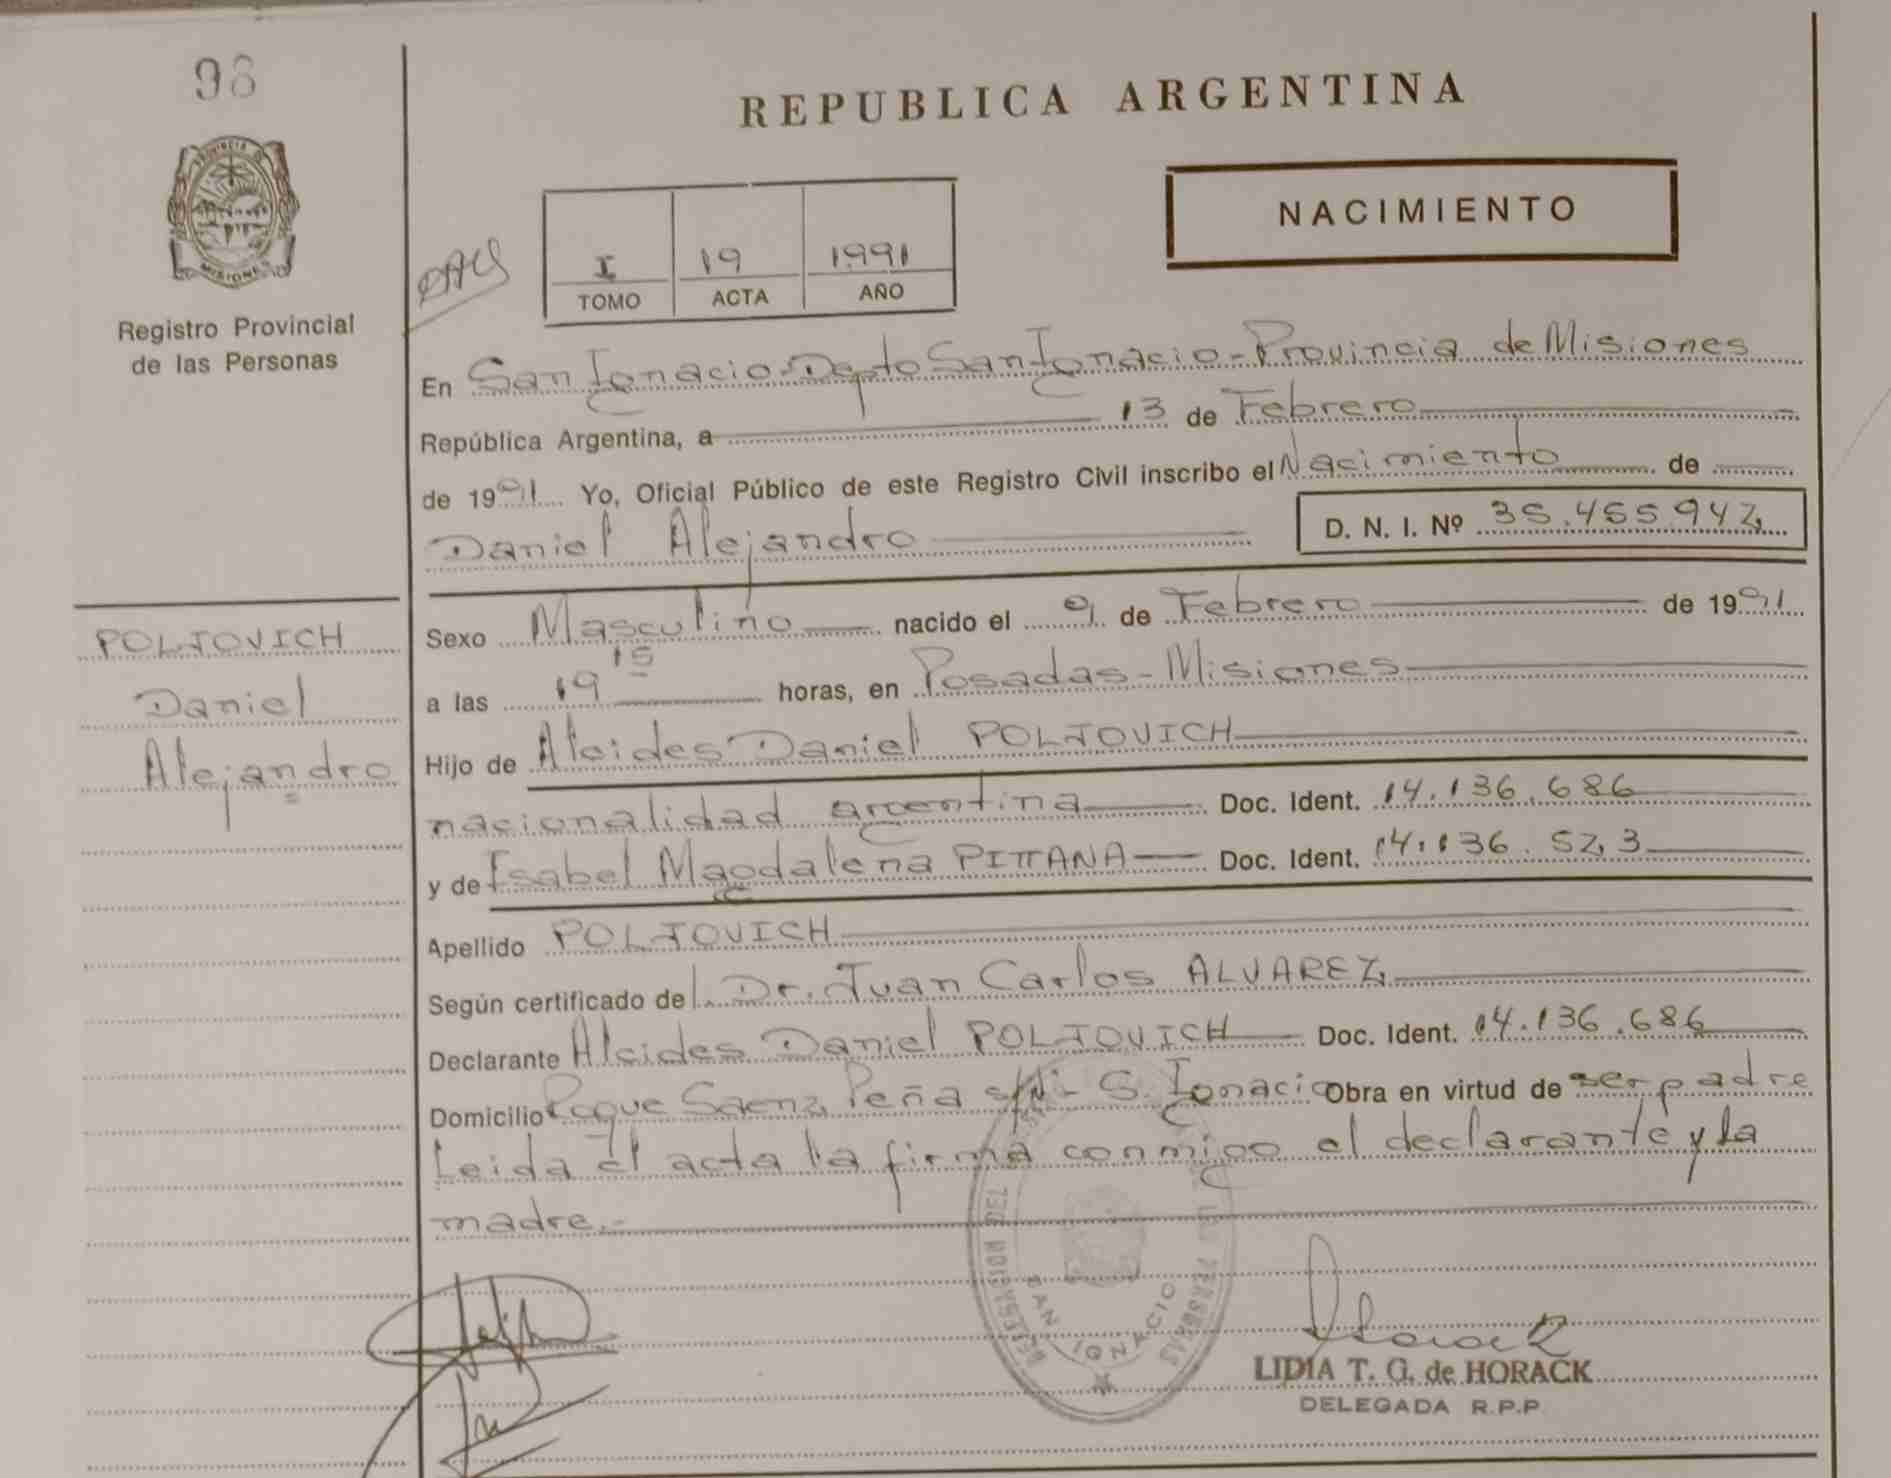 98
PROVINCIA DE
MISIONES
Registro Provincial
de las Personas
REPUBLICA ARGENTINA
NACIMIENTO
I 19 1991
TOMO ACTA AÑO
En San Ignacio-Depto San Ignacio-Provincia de Misiones
República Argentina, a 13 de Febrero
de 1991 Yo, Oficial Público de este Registro Civil inscribo el Nacimiento de
Daniel Alejandro D. N. I. Nº 35.455.942
POLJOVICH
Daniel
Alejandro
Sexo Masculino nacido el 9 de Febrero de 1991
a las 19 15 horas, en Posadas-Misiones
Hijo de Alcides Daniel POLJOVICH
nacionalidad argentina Doc. Ident. 14.136.686
y de Isabel Magdalena PITTANA Doc. Ident. 14.136.523
Apellido POLJOVICH
Según certificado del Dr. Juan Carlos ALVAREZ
Declarante Alcides Daniel POLJOVICH Doc. Ident. 14.136.686
Domicilio Roque Saenz Peña s/Nº- S. Ignacio Obra en virtud de ser padre
Leida el acta la firma conmigo el declarante y la
madre.-
SAN IGNACIO
LIDIA T. G. de HORACK
DELEGADA R.P.P.